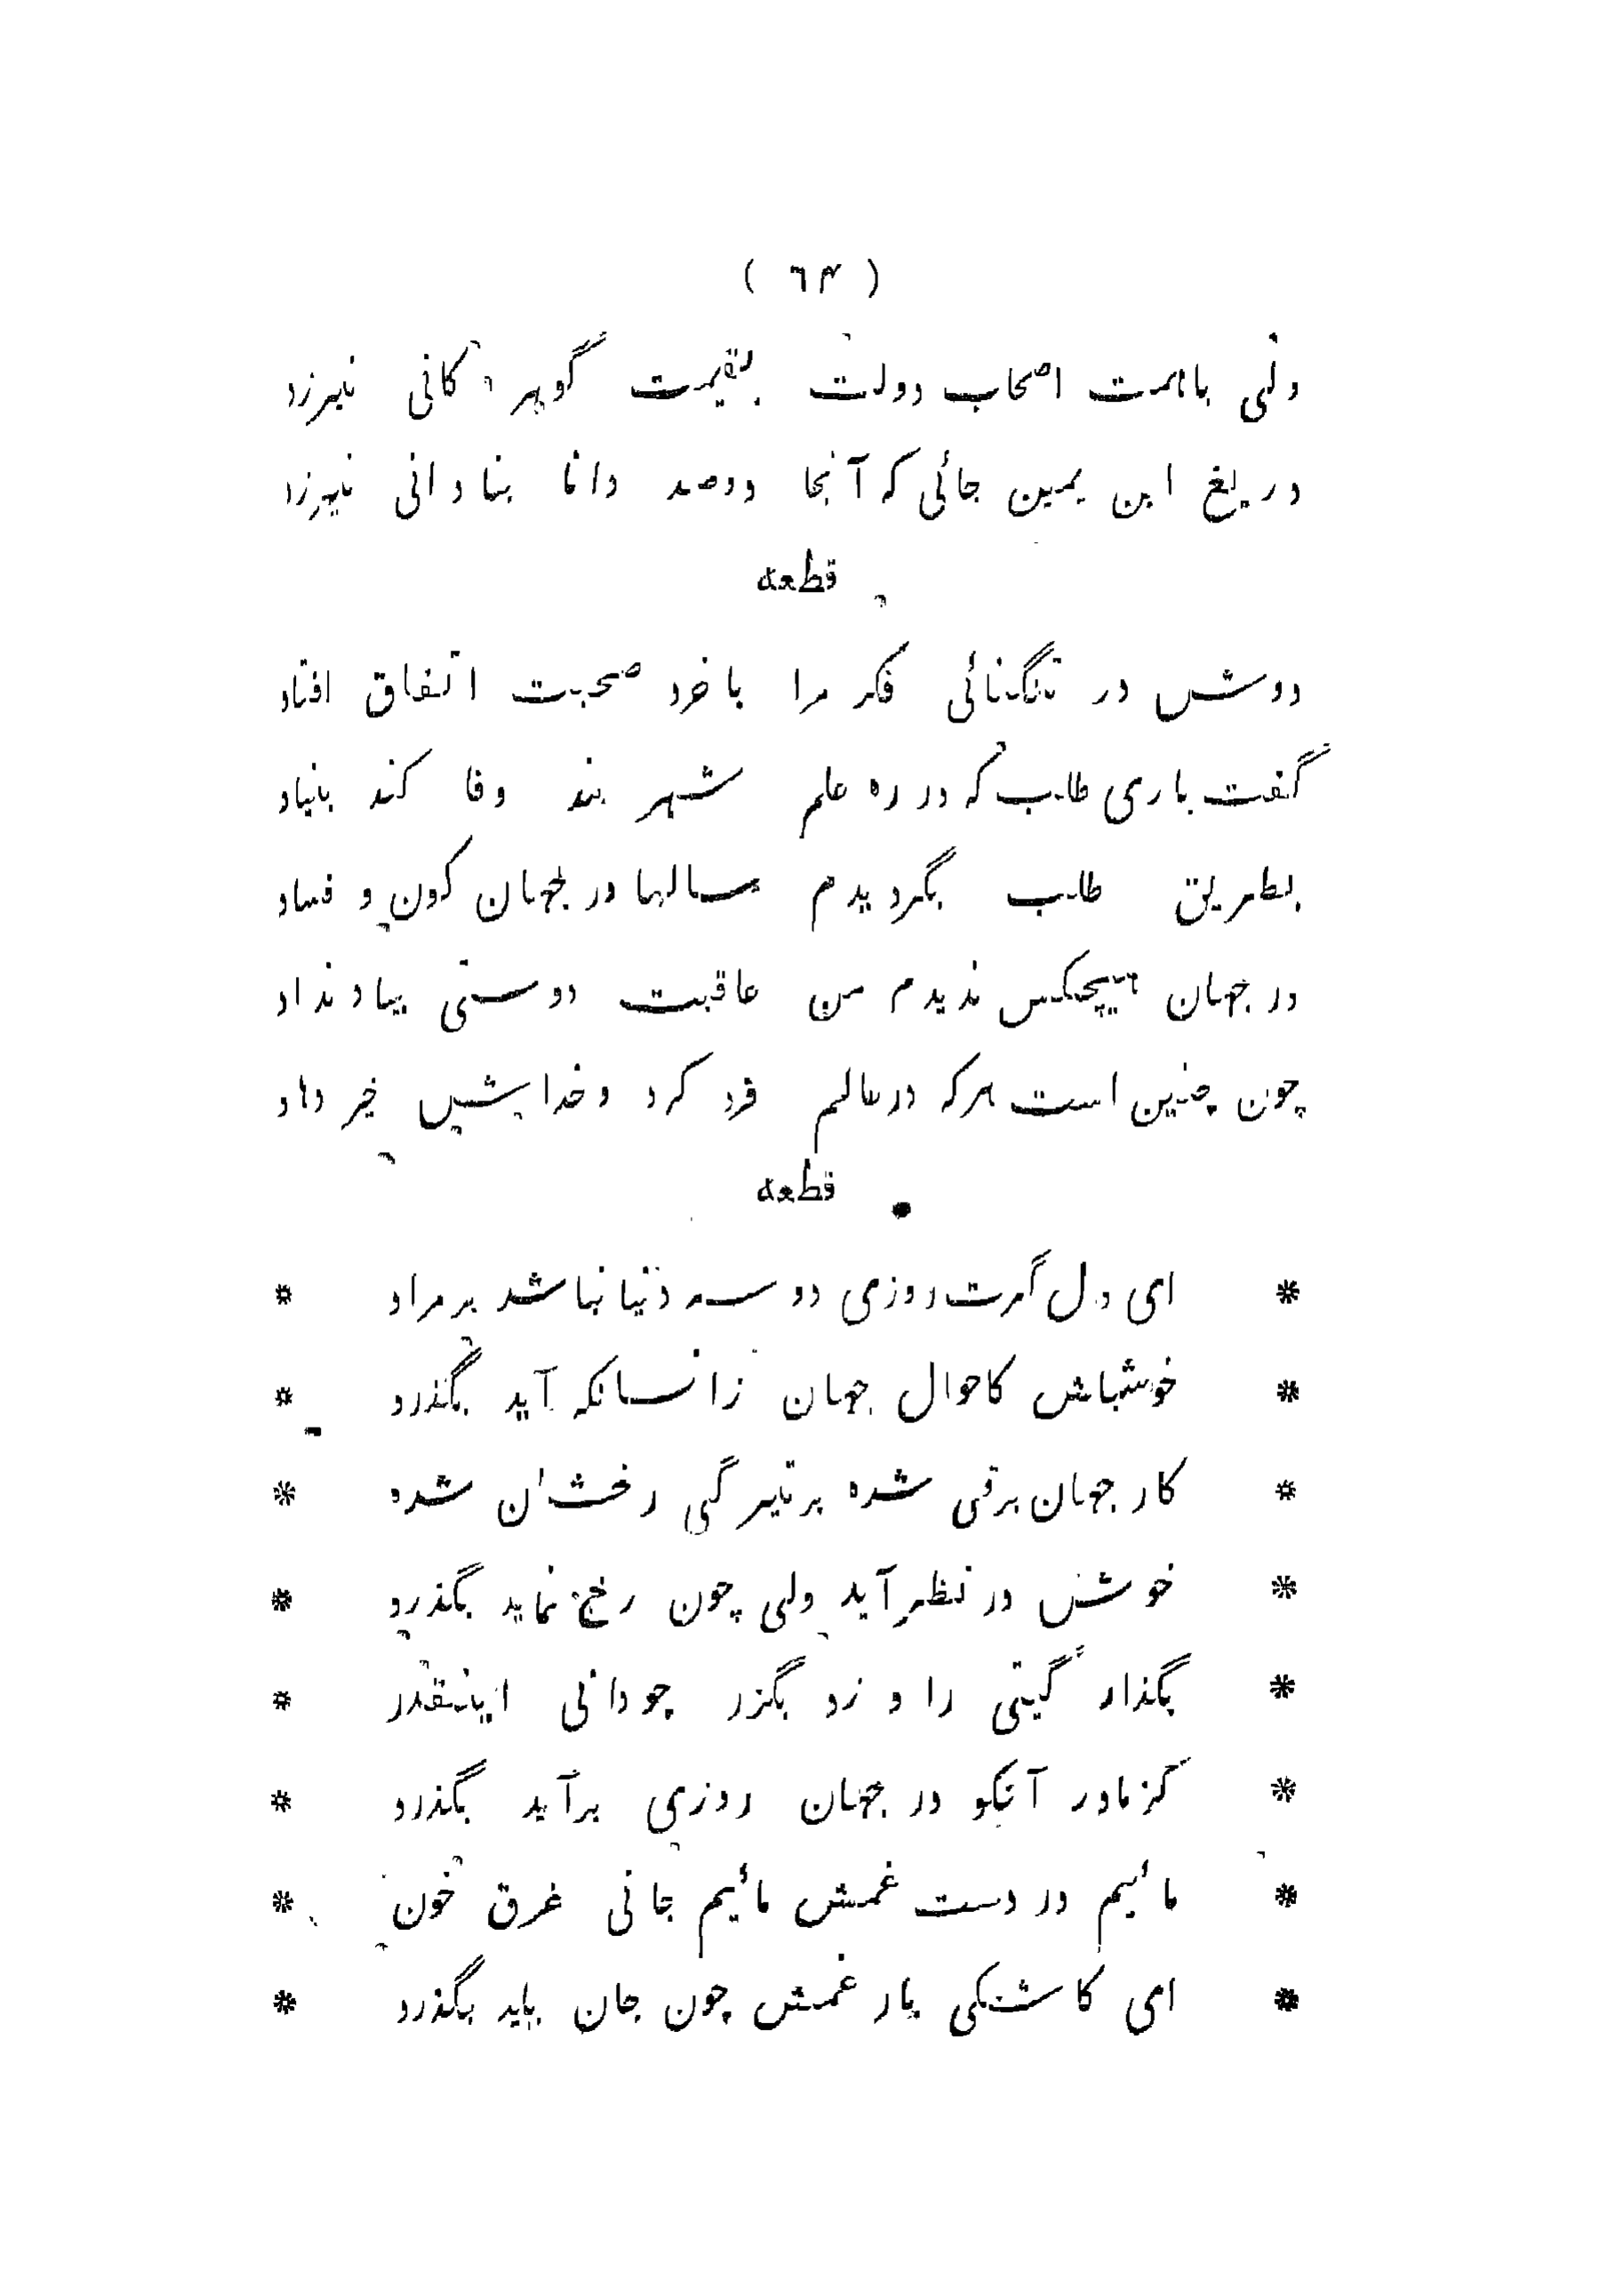 ( ٦۴ )
ولی باهمت اصحاب دولت بقیمت گوهر کانی نیرزد
دریغ ابن یمین جائی که آنجا دوصد دانا بنادانی نیرزد
قطعه
دوش در تنگنائی فکر مرا باخرد صحبت اتفاق افتاد
گفت باری طلب که در ره علم شهر بند وفا کند بنیاد
بطریق طلب بگردیدم سالها در جهان کون و فساد
در جهان هیچکس ندیدم من عاقبت دوستی بیاد نداد
چون چنین است هرکه در عالم فرد کرد و خدایش خیر دهاد
قطعه
* ای دل گرت روزی دو سه دنیا نباشد بر مراد *
* خوشباش کاحوال جهان زانسانکه آید بگذرد *
* کار جهان برقی شده بر تیرگی رخشان شده *
* خوش در نظر آید ولی چون رخ نماید بگذرد *
* بگذار گیتی را و زد بگزر چو دانی اینقدر *
* کز مادر آنکو در جهان روزی برآید بگذرد *
* مائیم در دست غمش مائیم جانی غرق خون *
* ای کاشکی بار غمش چون جان بباید بگذرد *